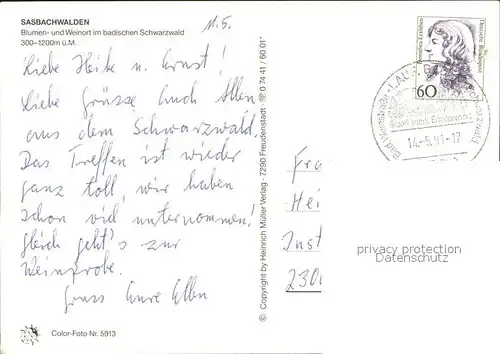 SASBACHWALDEN
Blumen- und Weinort im badischen Schwarzwald
300–1200m ü.M.
11.5.
Liebe Heike u. Ernst!
Liebe Grüsse Euch Allen
aus dem Schwarzwald.
Das Treffen ist wieder
ganz toll, wir haben
schon viel unternommen!
Gleich geht's zur
Weinprobe.
Gruss Eure Ellen
Color-Foto Nr. 5913
© Copyright by Heinrich Müller Verlag · 7290 Freudenstadt · ☏ 0 74 41 / 60 01
Deutsche Bundespost
60
14.-5.91-17
Fra
Hei
Inst
230
privacy protection
Datenschutz